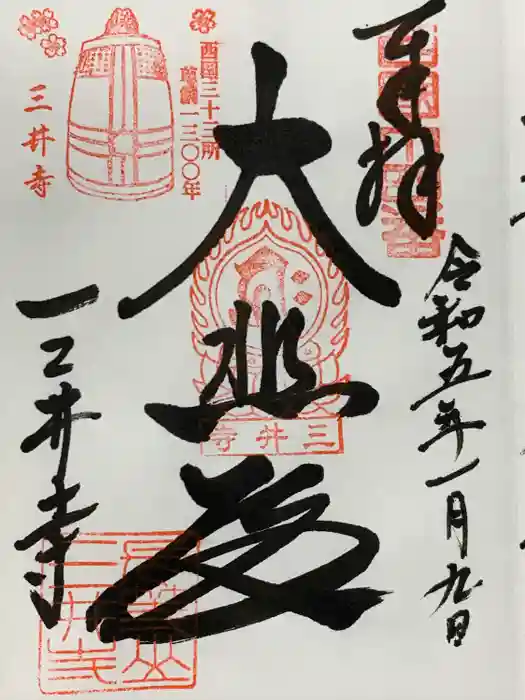 奉拝
令和五年一月九日
大悲殿
三井寺
三井寺
西国三十三所
草創一三〇〇年
三井寺